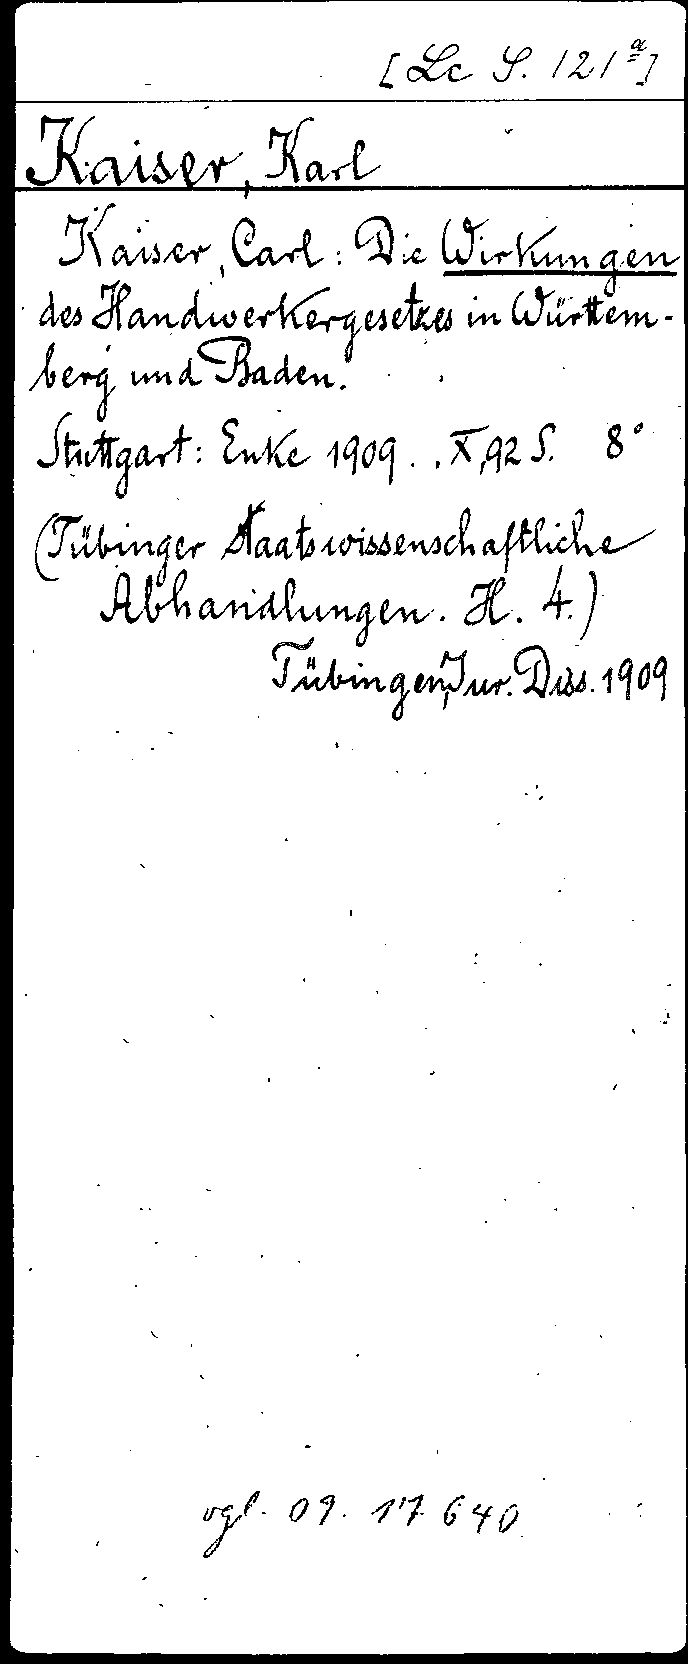 [Lc S. 121ª]
Kaiser, Karl
Kaiser, Carl: Die Wirkungen
des Handwerkergesetzes in Württem-
berg und Baden.
Stuttgart: Enke 1909. X,92 S. 8°
(Tübinger Staatswissenschaftliche
Abhandlungen. H. 4.)
Tübingen, Jur. Diss. 1909
vgl. 09. 17 640